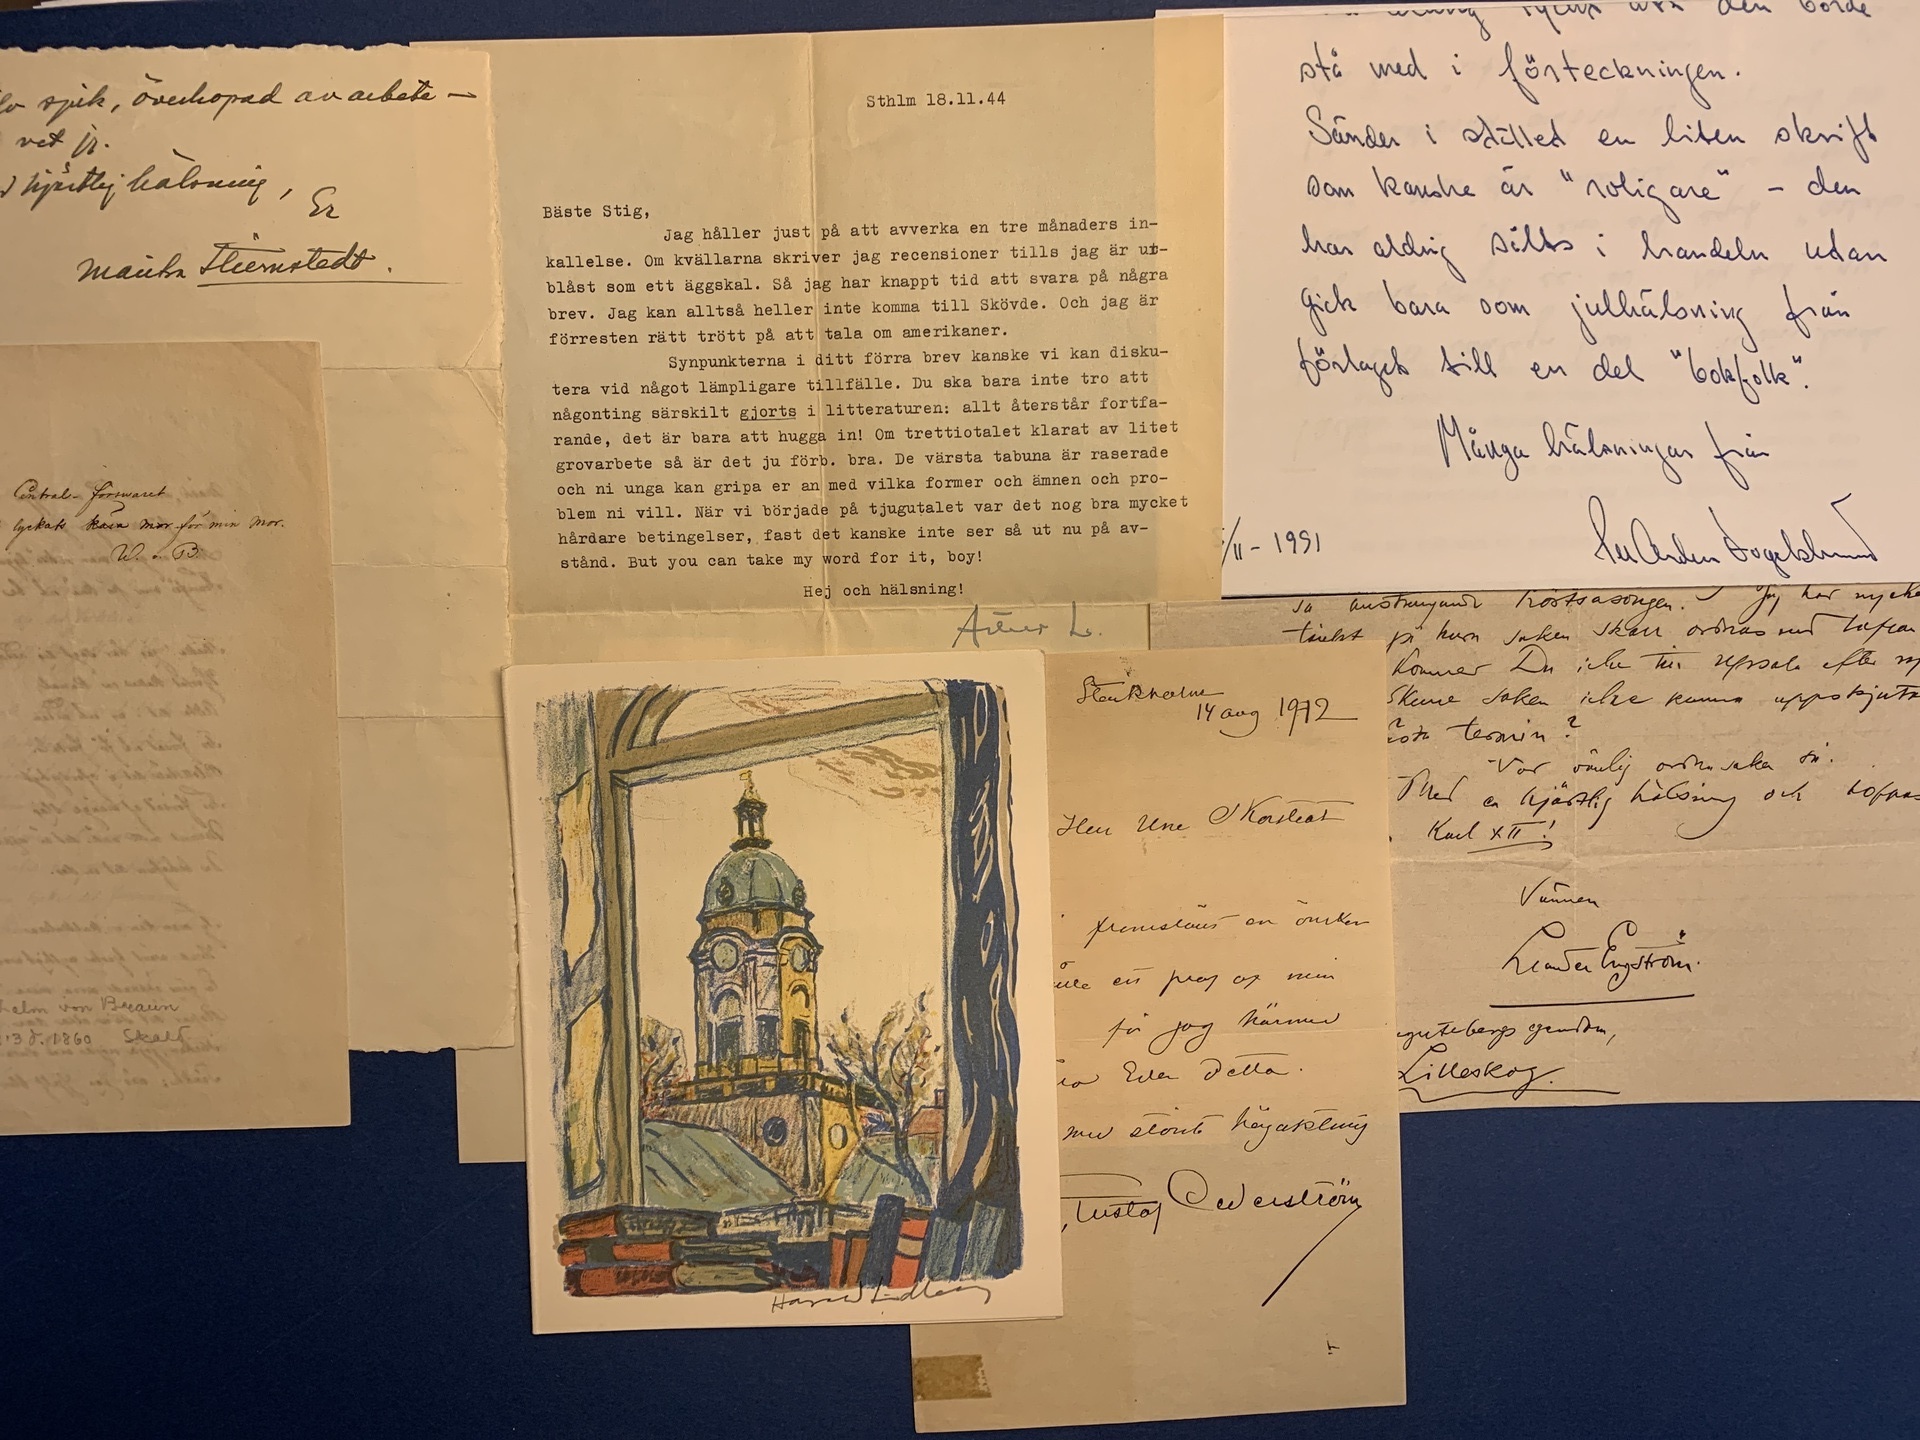 spik, överhopad av arbete —
vet jg.
hjärtlig hälsning,
Er
Marika Stiernstedt.
Central-försvaret
lyckats kära mor för min mor.
W. v. B.
helm von Braun
1860 Skald
Sthlm 18.11.44
Bäste Stig,
Jag håller just på att avverka en tre månaders in-
kallelse. Om kvällarna skriver jag recensioner tills jag är ut-
blåst som ett äggskal. Så jag har knappt tid att svara på några
brev. Jag kan alltså heller inte komma till Skövde. Och jag är
förresten rätt trött på att tala om amerikaner.
Synpunkterna i ditt förra brev kanske vi kan disku-
tera vid något lämpligare tillfälle. Du ska bara inte tro att
någonting särskilt gjorts i litteraturen: allt återstår fortfa-
rande, det är bara att hugga in! Om trettiotalet klarat av litet
grovarbete så är det ju förb. bra. De värsta tabuna är raserade
och ni unga kan gripa er an med vilka former och ämnen och pro-
blem ni vill. När vi började på tjugutalet var det nog bra mycket
hårdare betingelser, fast det kanske inte ser så ut nu på av-
stånd. But you can take my word for it, boy!
Hej och hälsning!
Artur L.
den borde
stå med i förteckningen.
Sänder i stället en liten skrift
som kanske är "roligare" - den
har aldrig sålts i handeln utan
gick bara som julhälsning från
förlaget till en del "bokfolk".
Många hälsningar från
/11 - 1991
Per Anders Fogelström
så ansträngande höstsäsongen. Jag har mycke
tänkt på hur saken skall ordnas med
Kommer Du icke till Uppsala efter ny
Skulle saken icke kunna uppskjutas
termin?
Var vänlig ordna saken så.
Med en hjärtlig hälsning och
Karl XII!
Vännen
Leander Engström.
egendom,
Lilleskog.
Stockholm
14 aug 1912
Herr Une
en önskan
ett prof af min
får jag härmed
Eder detta.
med största högaktning
Gustaf Cederström
Harald Lindberg